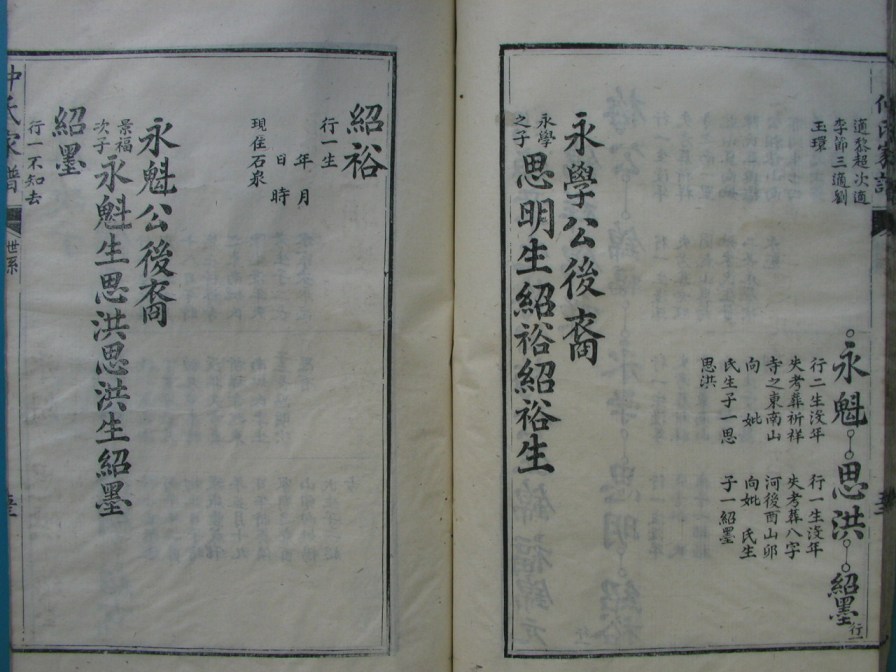 適黎超次適
李節三適劉
玉環
永魁
行二生沒年
失考葬祈祥
寺之東南山
向 妣
氏生子一思
思洪
思洪
行一生沒年
失考葬八字
河後酉山卯
向妣 氏生
子一紹墨
紹墨 行一
永學公後裔
永學之子 思明生紹裕紹裕生
紹裕
行一生
年 月
日 時
現住石泉
永魁公後裔
景福次子 永魁生思洪思洪生紹墨
紹墨
行一不知去
氏家譜
世系